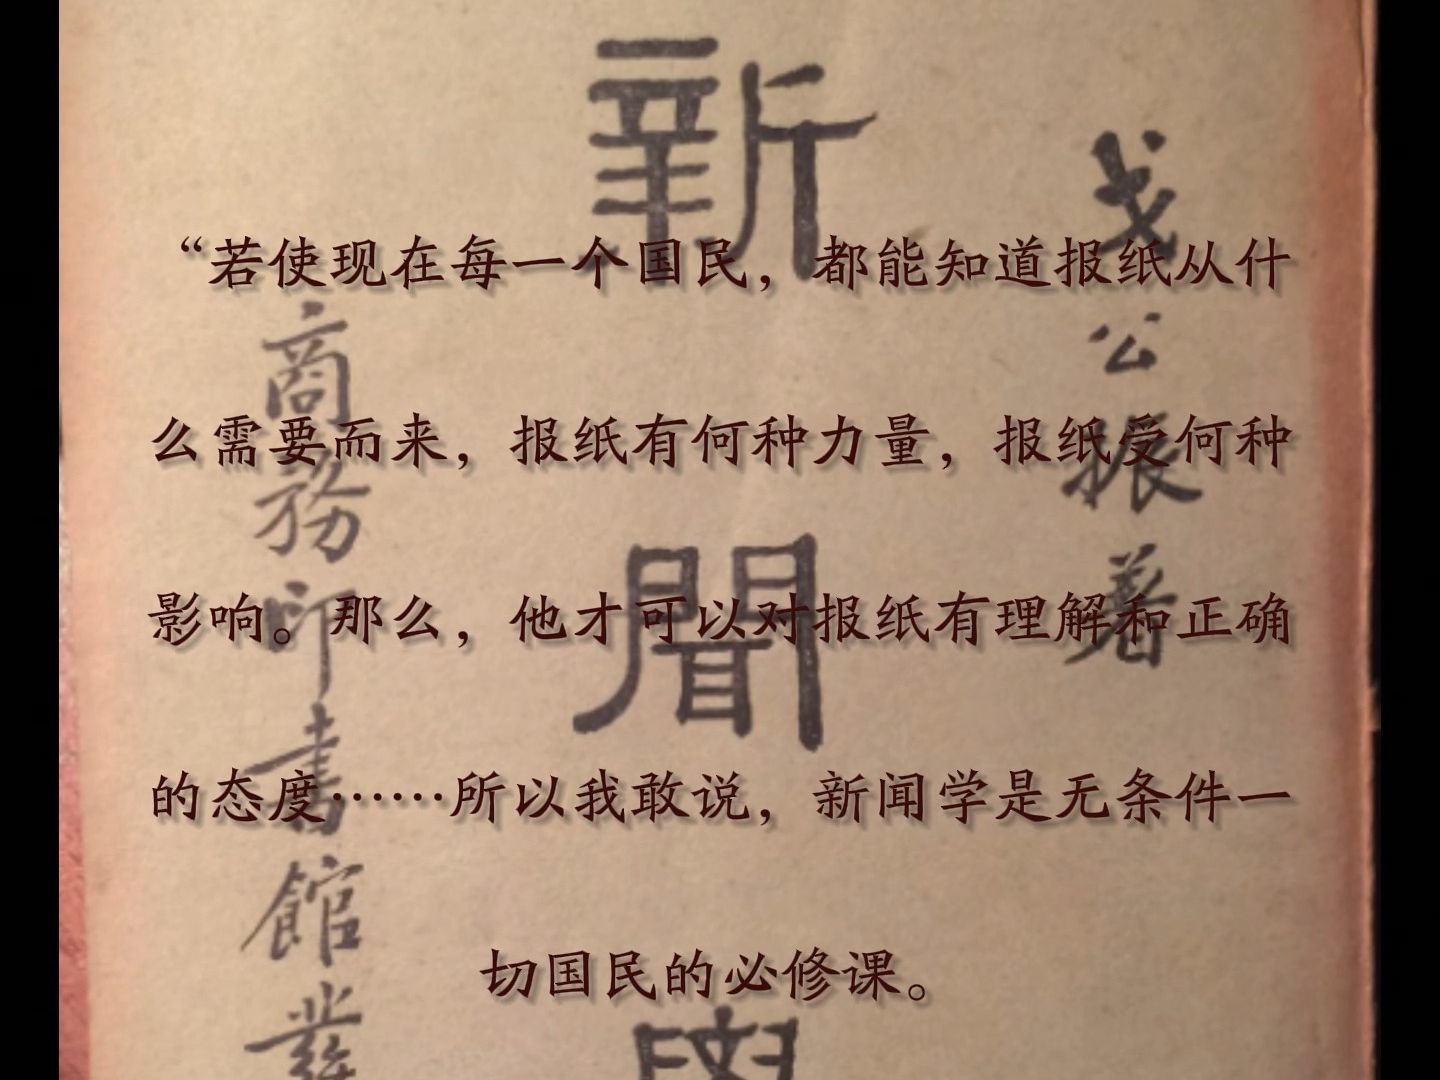 “若使现在每一个国民，都能知道报纸从什
么需要而来，报纸有何种力量，报纸受何种
影响。那么，他才可以对报纸有理解和正确
的态度……所以我敢说，新闻学是无条件一
切国民的必修课。
戈公振著
新聞學
商務印書館發